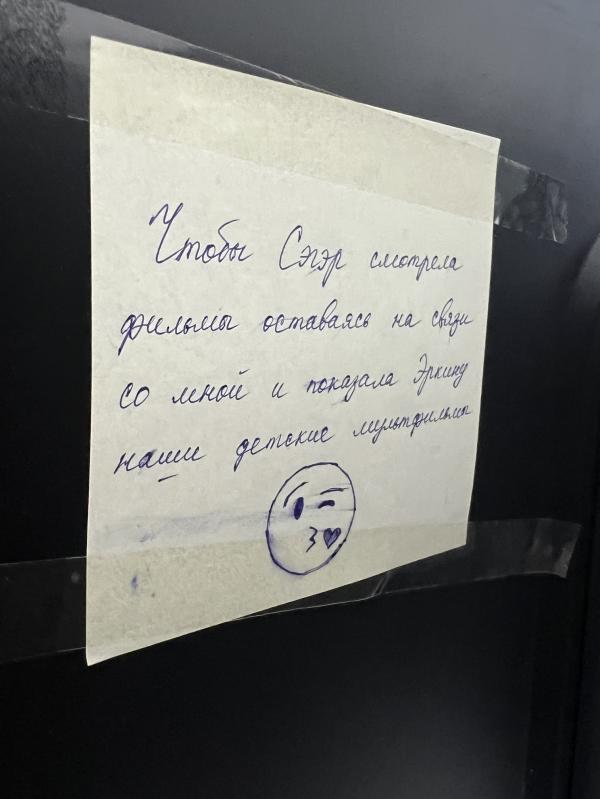 Чтобы Сэгэр смотрела
фильмы оставаясь на связи
со мной и показала Эркину
наши детские мультфильмы